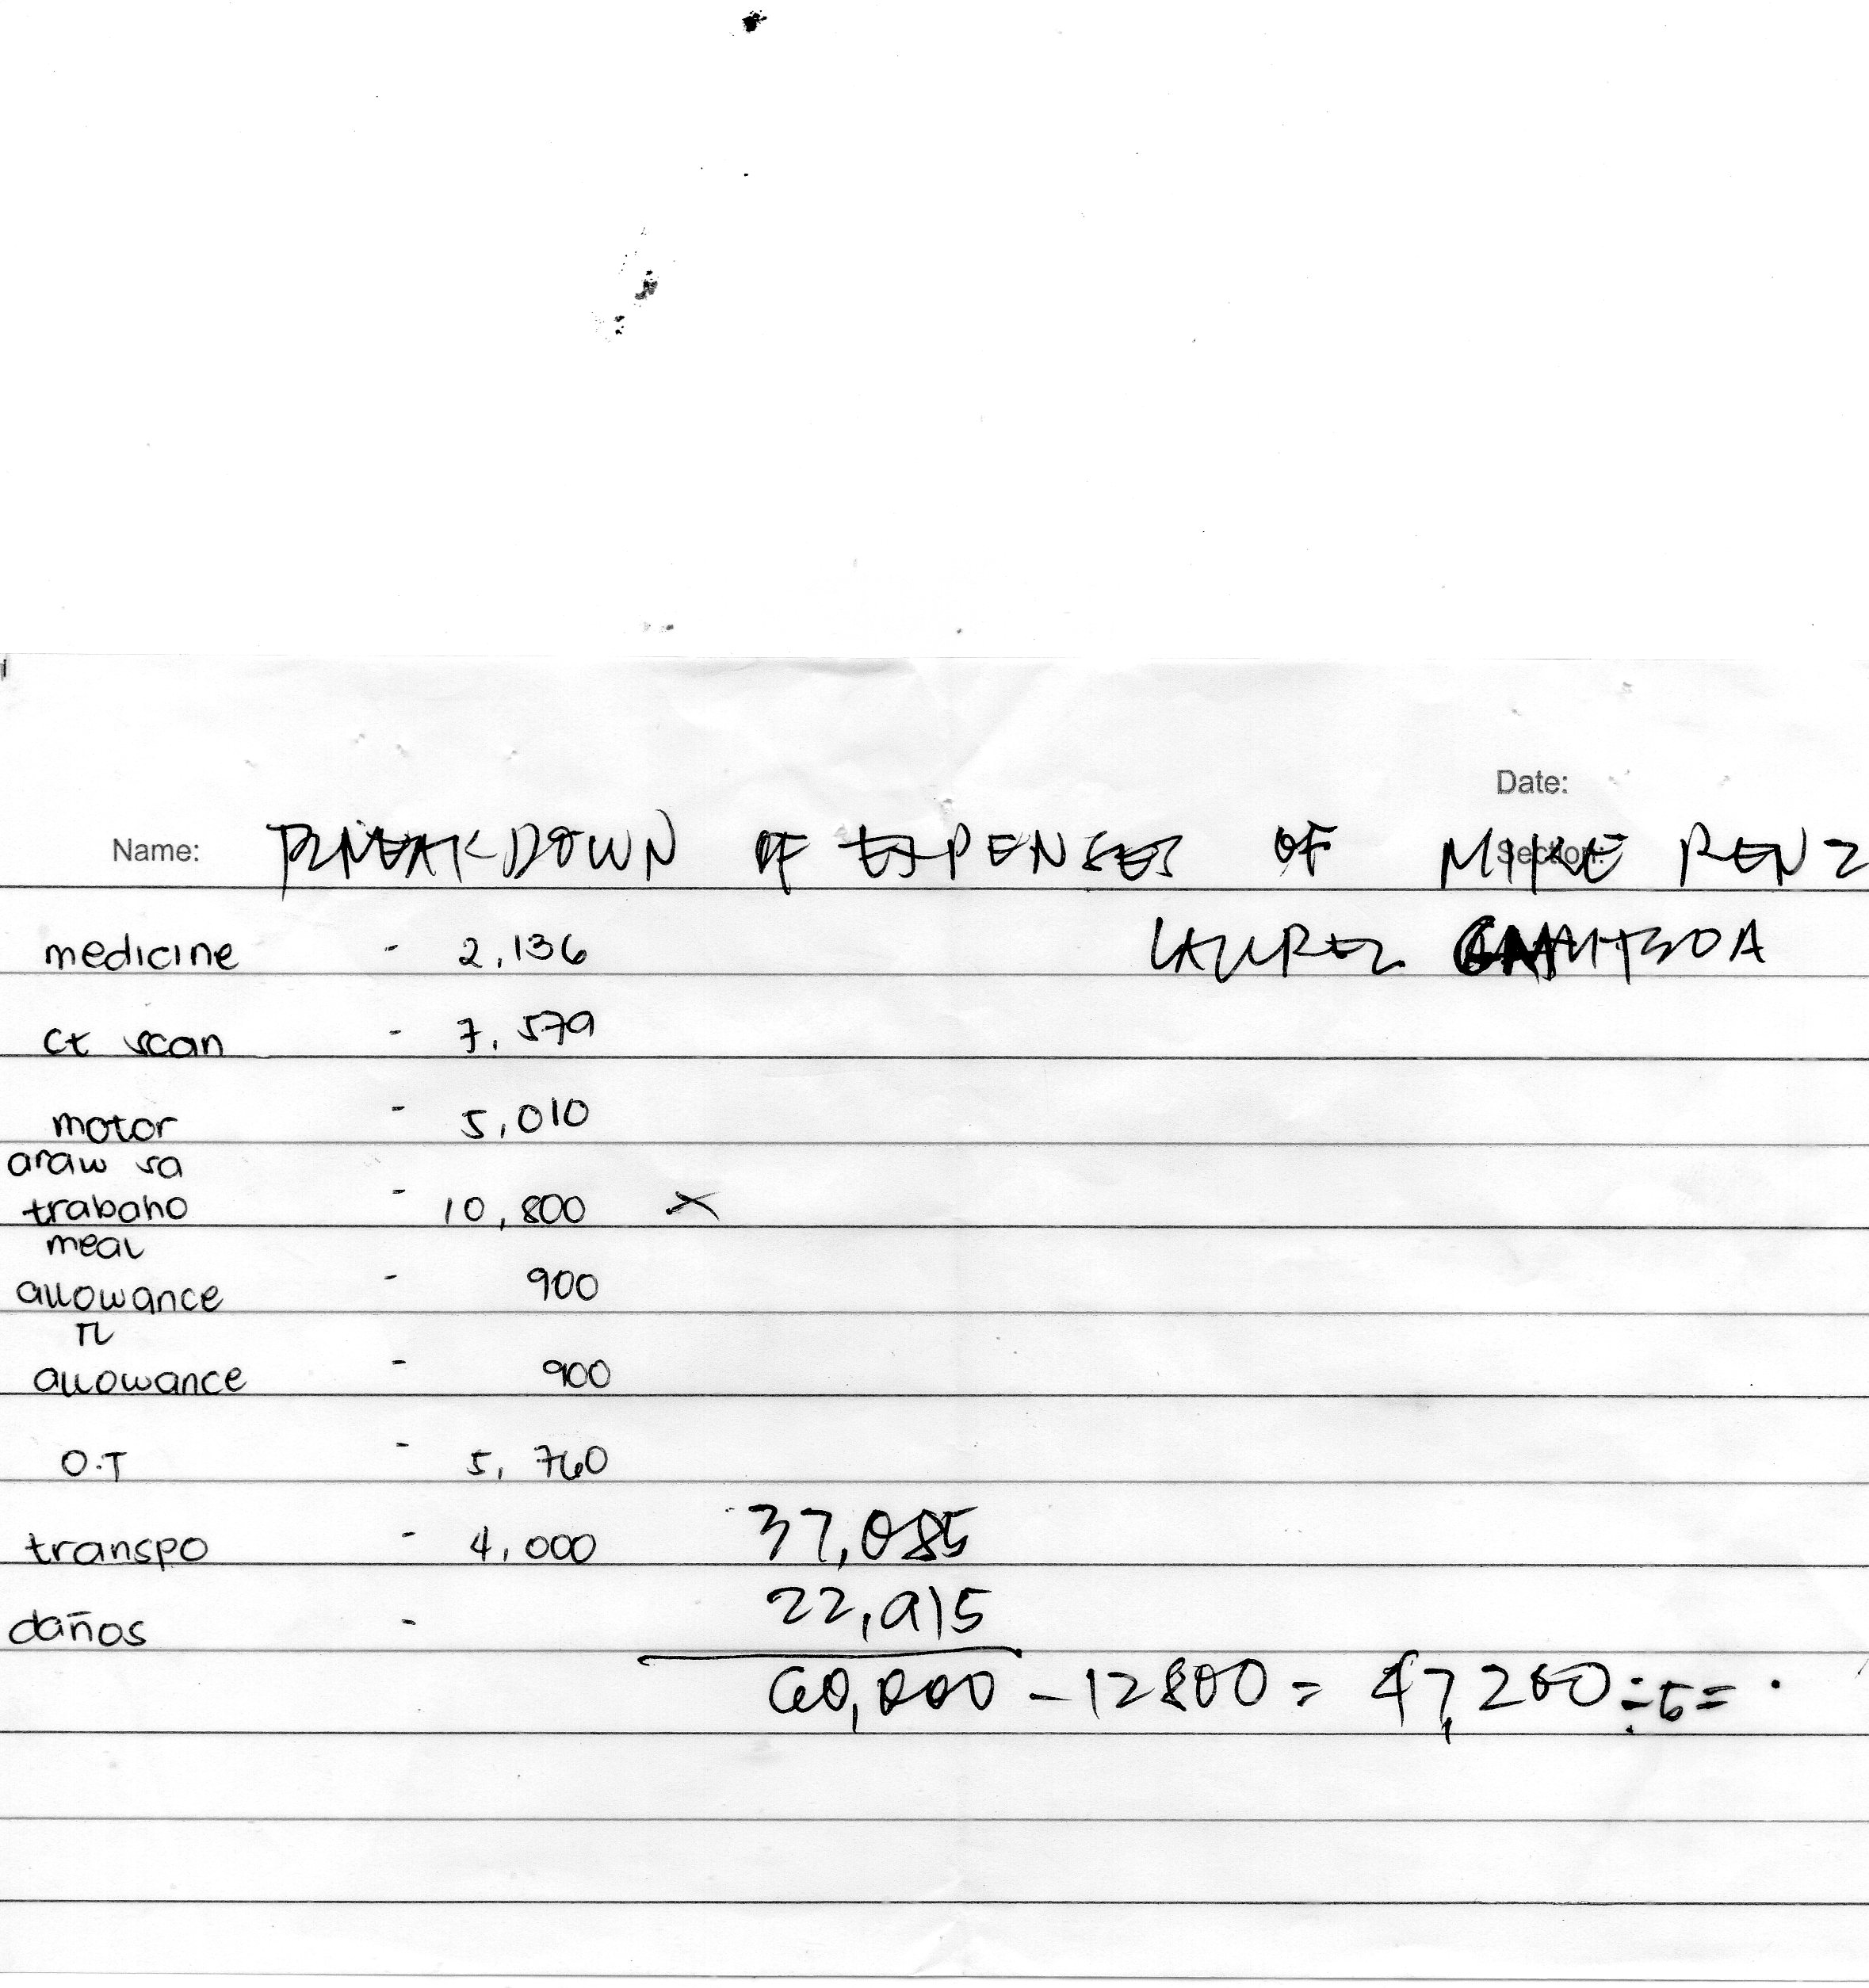 Date:
Name: BREAKDOWN OF EXPENSES OF MIKE RENZ
Section:
LAUREL GAMBOA
medicine - 2,136
ct scan - 7,579
motor - 5,010
araw sa
trabaho - 10,800 x
meal
allowance - 900
TL
allowance - 900
O.T - 5,760
transpo - 4,000 37,085
daños - 22,915
60,000 - 12800 = 47,200 ÷ 5 = .